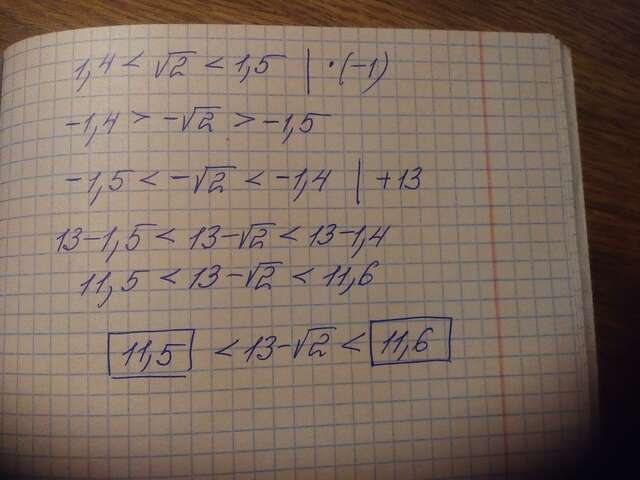 1,4 < √2 < 1,5 | · (-1)
-1,4 > -√2 > -1,5
-1,5 < -√2 < -1,4 | +13
13-1,5 < 13-√2 < 13-1,4
11,5 < 13-√2 < 11,6
11,5 < 13-√2 < 11,6